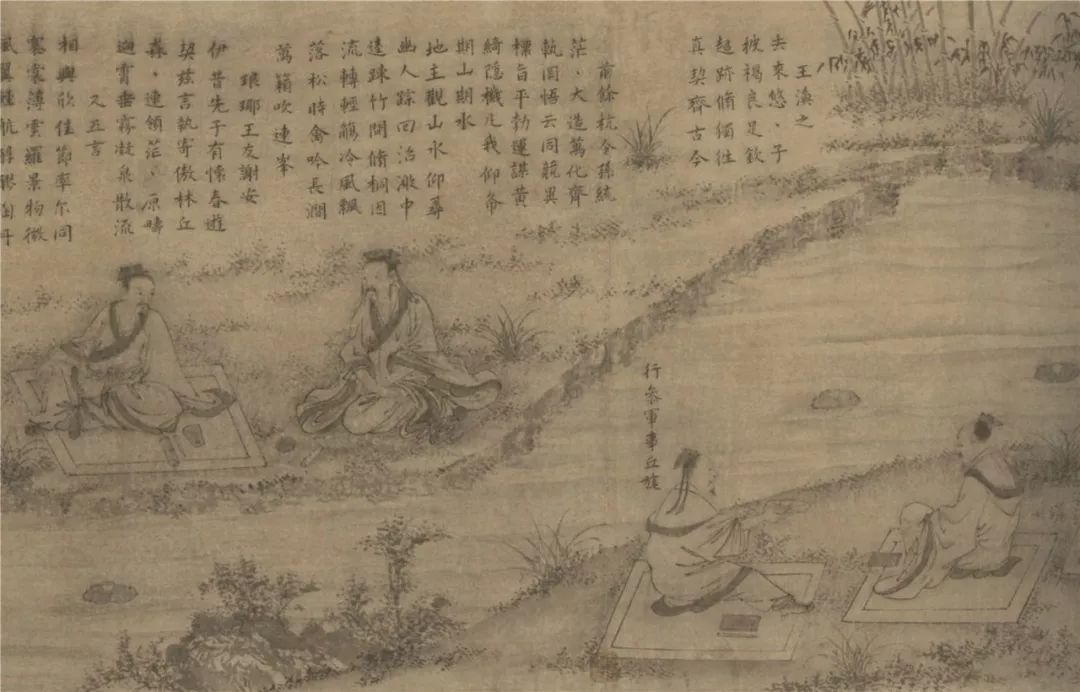 王渙之
去來悠、子
被褐良足欽
超跡脩獨往
真契齊古今
前餘杭令孫統
茫、大造萬化齊
軌罔悟云同競異
標旨平勃運謀黃
綺隱機凡我仰希
期山期水
地主觀山水仰尋
幽人踪回沼激中
逵踈竹間脩桐因
流轉輕觴冷風飄
落松時禽吟長澗
萬籟吹連峯
琅瑘王友謝安
伊昔先子有懷春遊
契茲言執寄傲林丘
森、連領茫、原疇
迥霄垂霧凝泉散流
又五言
相與欣佳節率尔同
褰裳薄雲羅景物微
行參軍事丘旄